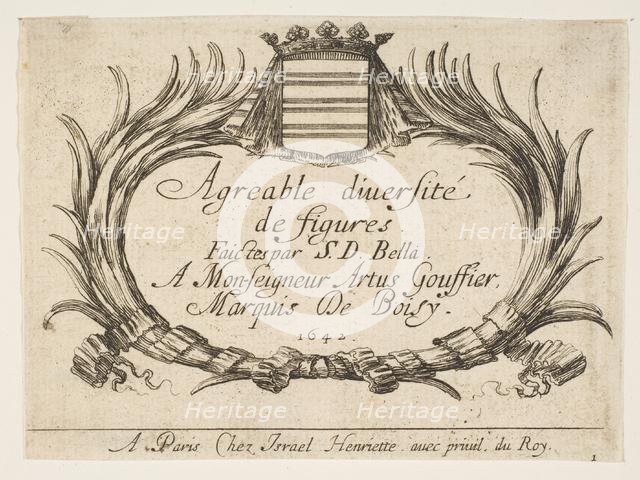 Agreable diuersité
de figures.
Faictes par S. D. Bella.
A Mon-seigneur Artus Gouffier,
Marquis De Boisy.
1642.
A Paris Chez Israel Henriette. auec priuil. du Roy.
1
Heritage Heritage Heritage
Heritage Heritage
Heritage Heritage Heritage